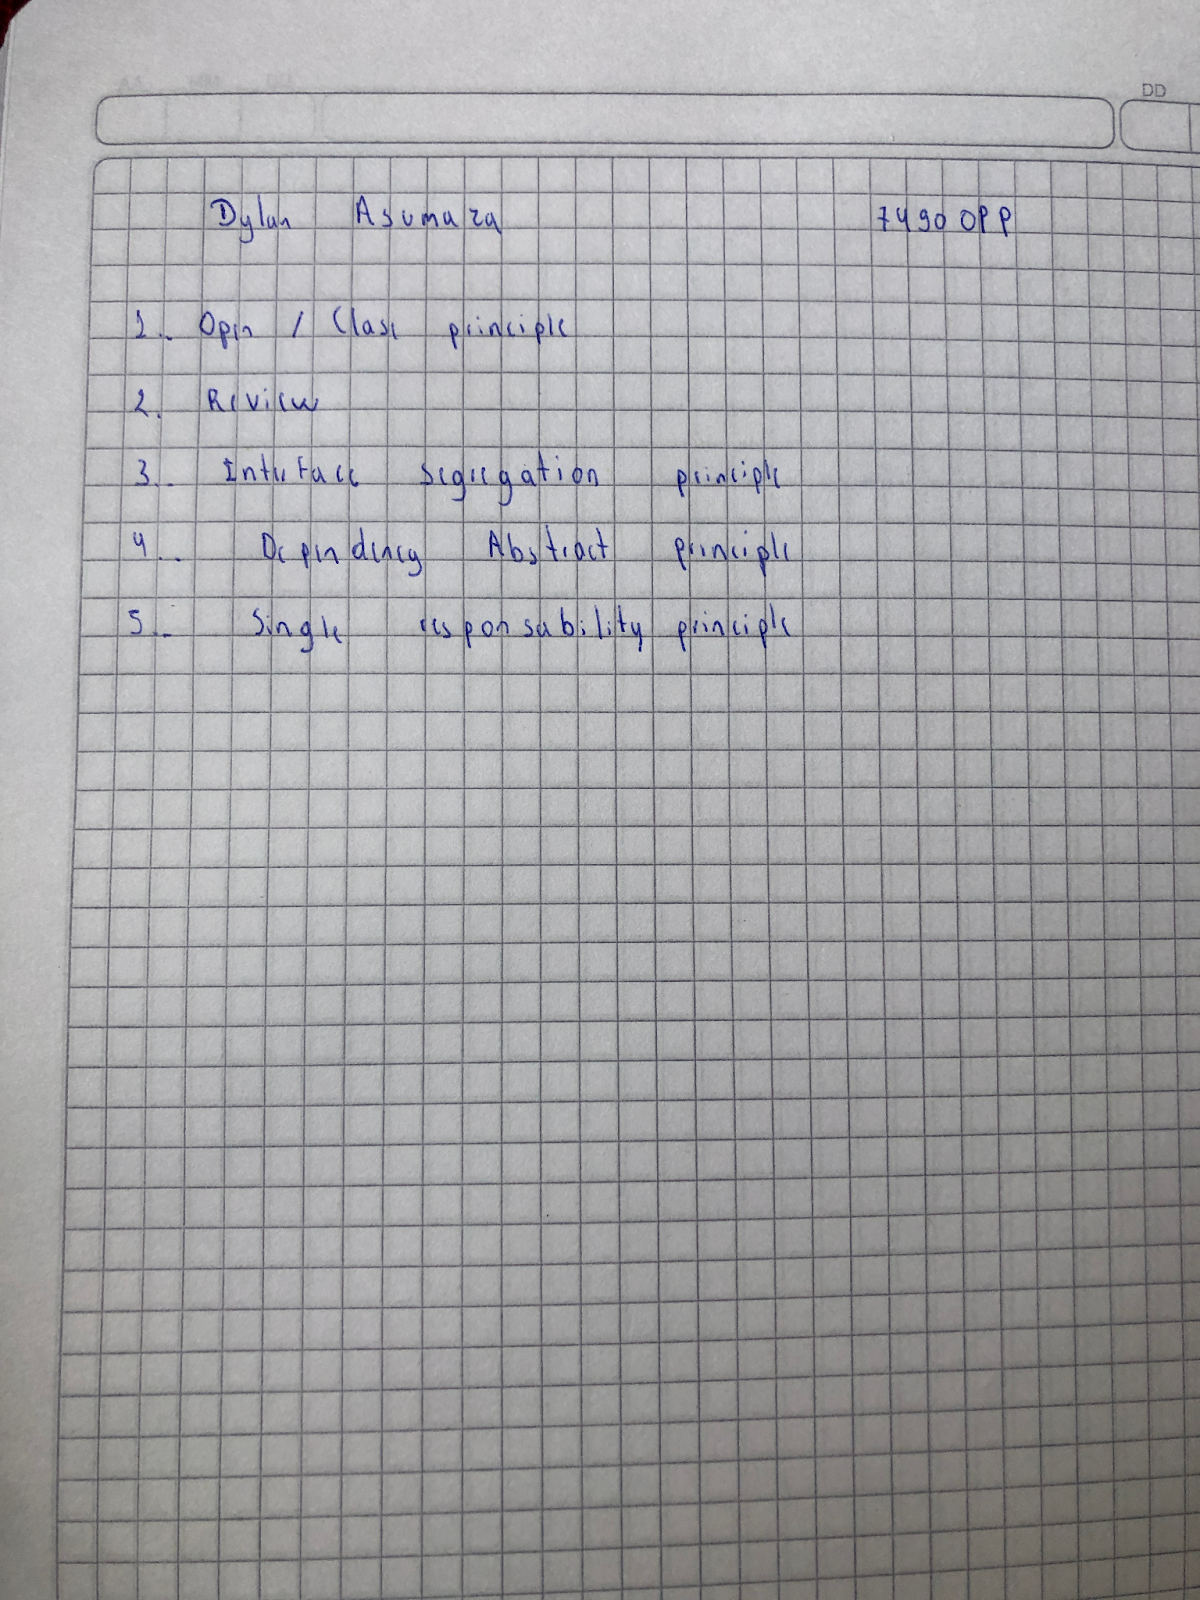 DD
Dylan Asumaza 7490 OPP
1.. Open / Close principle
2. Review
3.. Interface segregation principle
4.. Dependency Abstract principle
5.. Single responsability principle